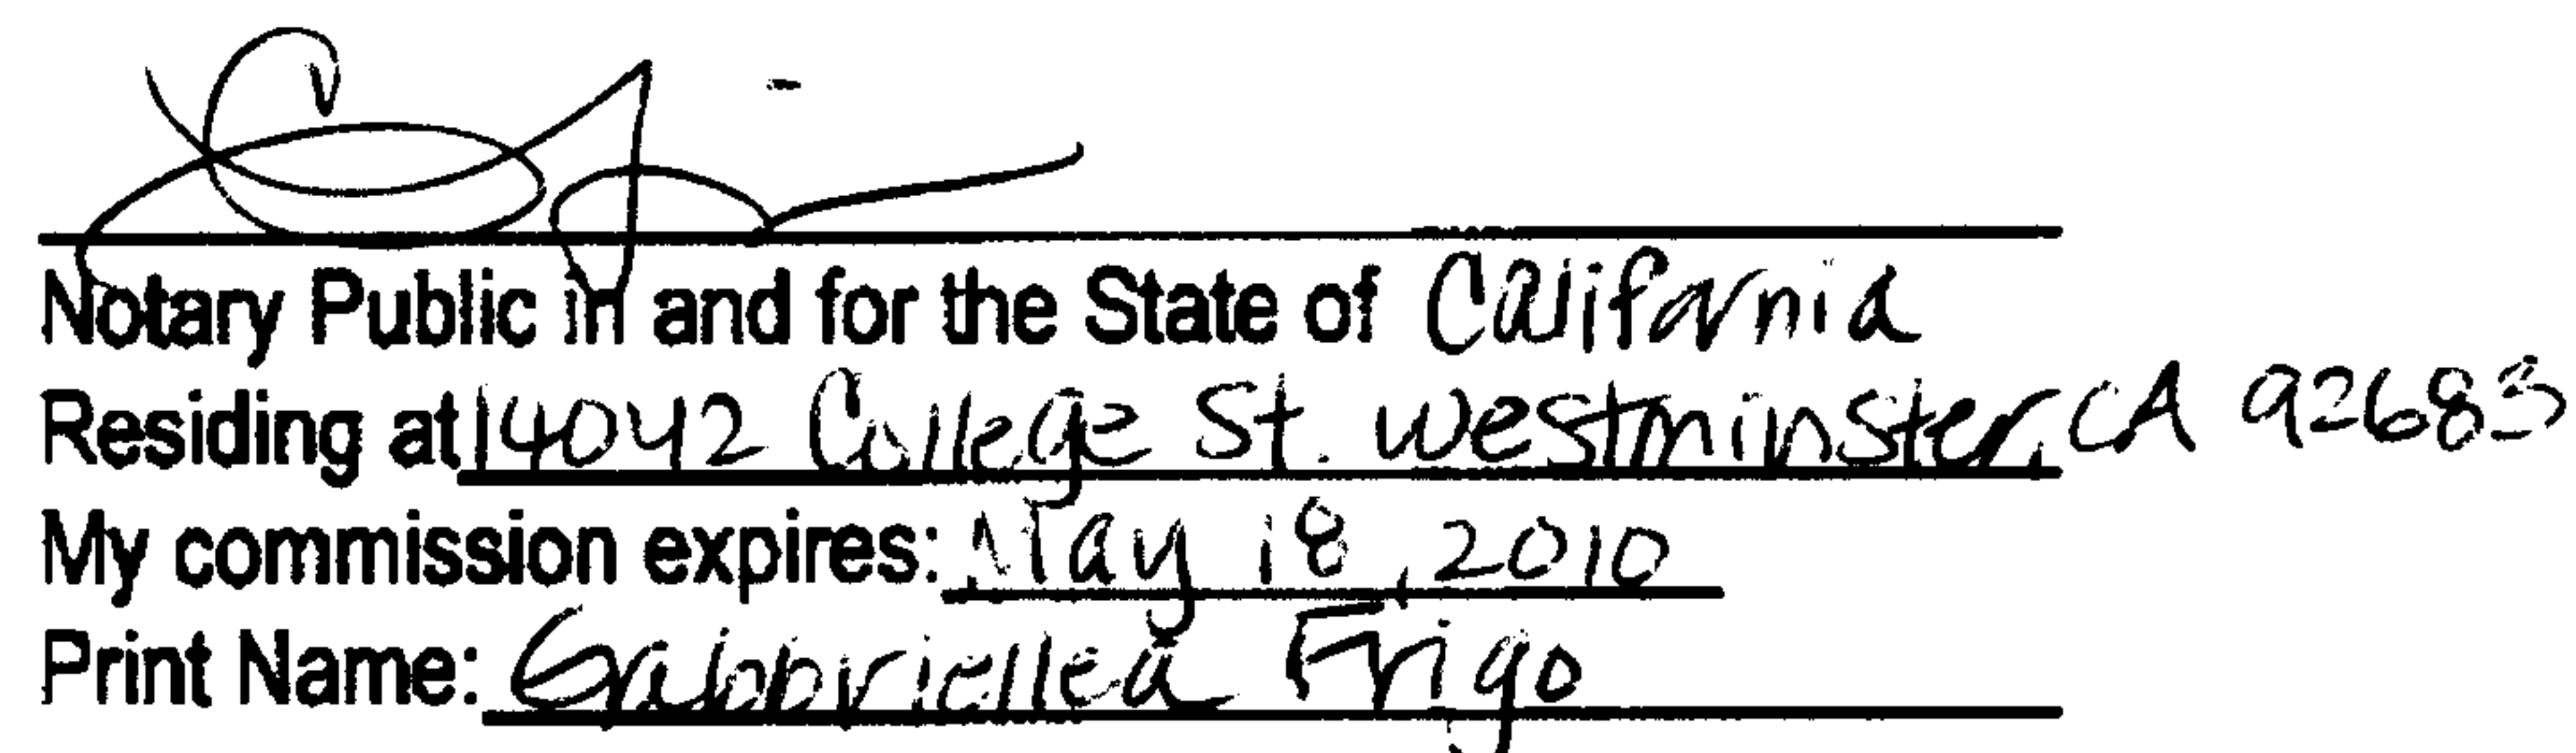 Notary Public in and for the State of California
Residing at 14042 College St. Westminster, CA 92683
My commission expires: May 18, 2010
Print Name: Gabbriellea Frigo